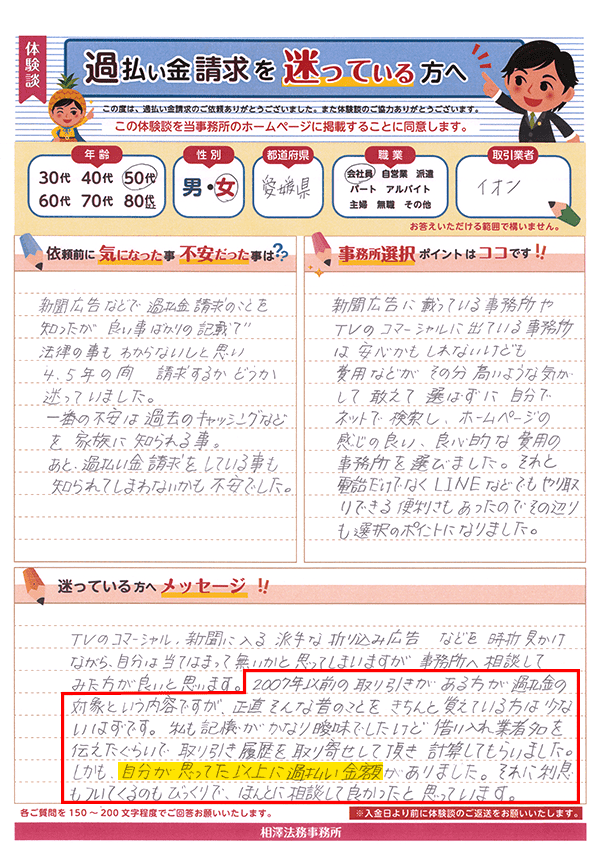 体験談
過払い金請求を迷っている方へ
この度は、過払い金請求のご依頼ありがとうございました。また体験談のご協力ありがとうございます。
この体験談を当事務所のホームページに掲載することに同意します。
年齢
30代 40代 50代
60代 70代 80代以上
性別
男・女
都道府県
愛媛県
職業
会社員 自営業 派遣
パート アルバイト
主婦 無職 その他
取引業者
イオン
お答えいただける範囲で構いません。
依頼前に気になった事 不安だった事は??
新聞広告などで過払金請求のことを
知ったが 良い事ばかりの記載で
法律の事も わからないしと思い
4.5年の間 請求するかどうか
迷っていました。
一番の不安は過去のキャッシングなど
を 家族に知られる事。
あと、過払い金請求をしている事も
知られてしまわないかも不安でした。
事務所選択ポイントはココです!!
新聞広告に載っている事務所や
TVのコマーシャルに出ている事務所
は 安心かもしれないけども
費用などが その分 高いような気が
して 敢えて 選ばずに 自分で
ネットで検索し、ホームページの
感じの良い、良心的な 費用の
事務所を選びました。それと
電話だけでなくLINEなどでもやり取
りできる便利さもあったのでその辺り
も選択のポイントになりました。
迷っている方へメッセージ!!
TVのコマーシャル、新聞に入る 派手な折り込み広告 などを 時折見かけ
ながら、自分は当てはまって無いかと思ってしまいますが 事務所へ相談して
みた方が良いと思います。2007年以前の取り引きがある方が過払金の
対象という内容ですが、正直そんな昔のことをきちんと覚えている方は少な
いはずです。私も記憶がかなり曖昧でしたけど 借り入れ業者名を
伝えたぐらいで 取り引き履歴を取り寄せして頂き 計算してもらいました。
しかも、自分が思ってた以上に過払い金額がありました。それに利息
もついてくるのもびっくりで、ほんとに相談して良かったと思っています。
各ご質問を150〜200文字程度でご回答お願いいたします。
※入金日より前に体験談のご返送をお願いいたします。
相澤法務事務所